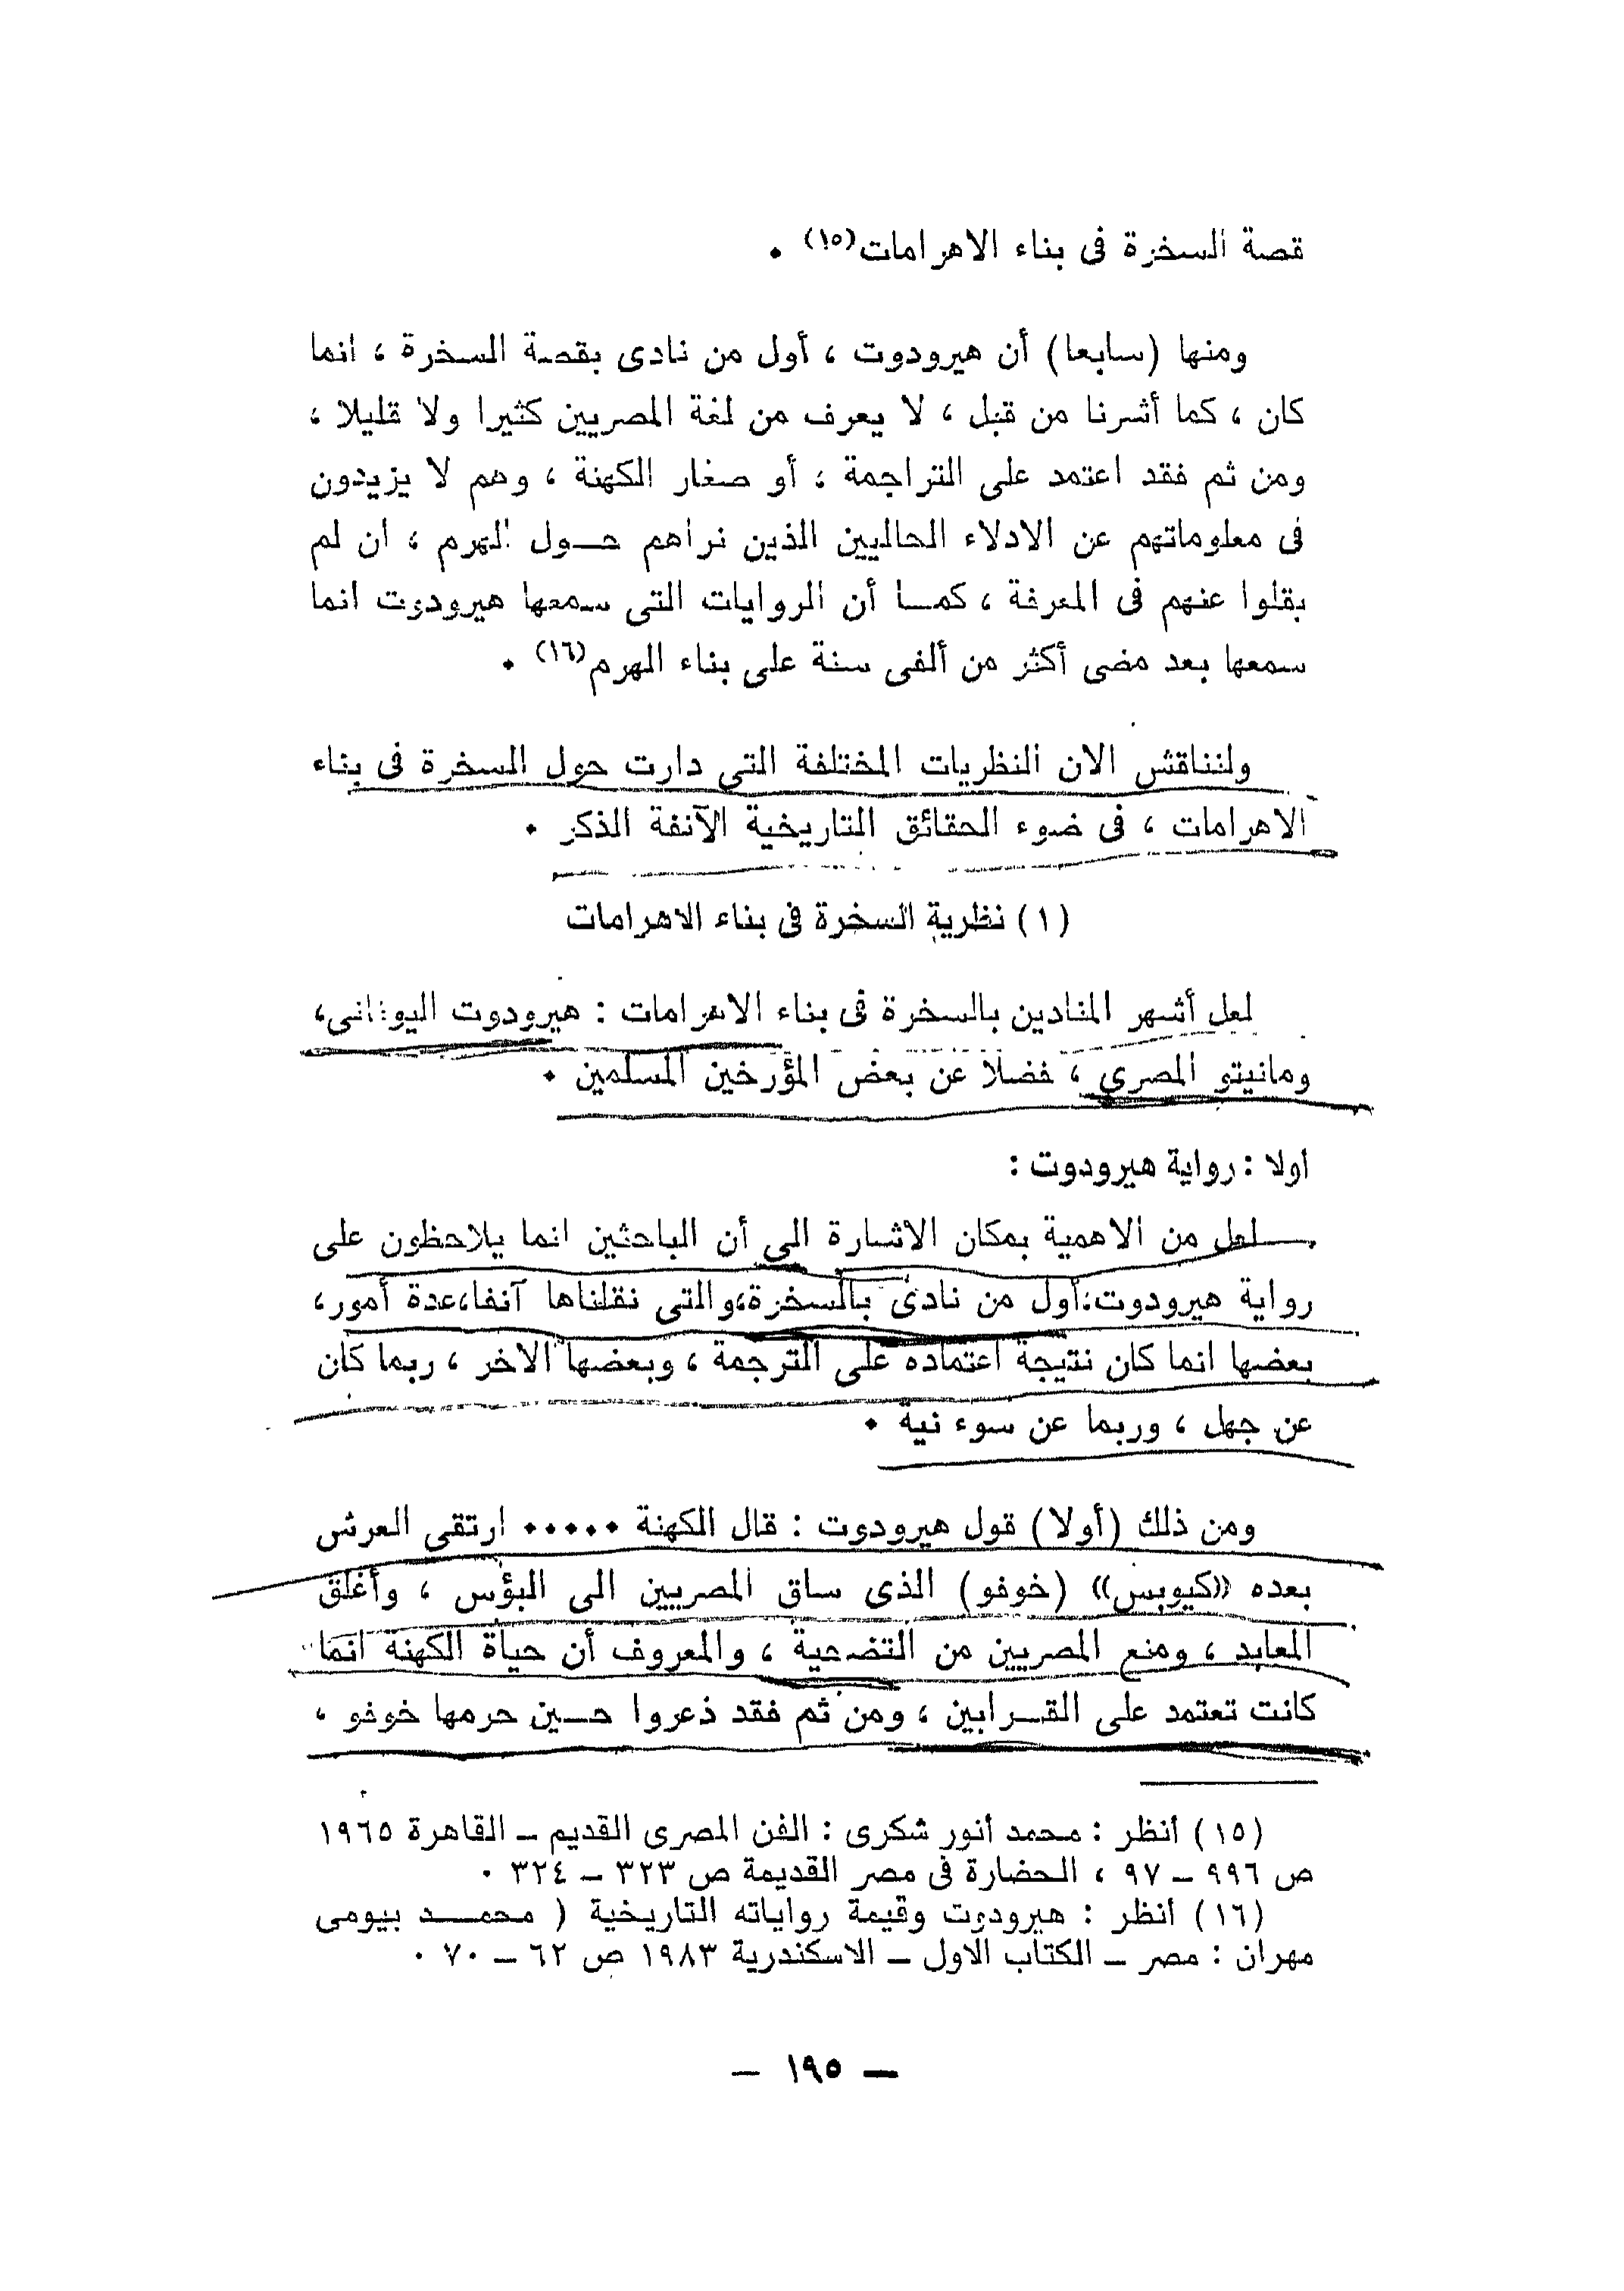 قصة السخرة فى بناء الاهرامات(١٥) ٠
ومنها (سابعا) أن هيرودوت ، أول من نادى بقصة السخرة ، انما
كان ، كما أشرنا من قبل ، لا يعرف من لغة المصريين كثيرا ولا قليلا ،
ومن ثم فقد اعتمد على التراجمة ، أو صغار الكهنة ، وهم لا يزيدون
فى معلوماتهم عن الادلاء الحاليين الذين نراهم حـول الهرم ، ان لم
يقلوا عنهم فى المعرفة ، كمـا أن الروايات التى سمعها هيرودوت انما
سمعها بعد مضى أكثر من ألفى سنة على بناء الهرم(١٦) ٠
ولنناقش الان النظريات المختلفة التى دارت حول السخرة فى بناء
الاهرامات ، فى ضوء الحقائق التاريخية الآنفة الذكر ٠
(١) نظرية السخرة فى بناء الاهرامات
لعل أشهر المنادين بالسخرة فى بناء الاهرامات : هيرودوت اليونانى،
ومانيتو المصرى ، فضلا عن بعض المؤرخين المسلمين ٠
اولا : رواية هيرودوت :
لعل من الاهمية بمكان الاشارة الى أن الباحثين انما يلاحظون على
رواية هيرودوت،أول من نادى بالسخرة،والتى نقلناها آنفا،عدة أمور،
بعضها انما كان نتيجة اعتماده على الترجمة ، وبعضها الاخر ، ربما كان
عن جهل ، وربما عن سوء نية ٠
ومن ذلك (أولا) قول هيرودوت : قال الكهنة ٠٠٠٠٠ ارتقى العرش
بعده «كيوبس» (خوفو) الذى ساق المصريين الى البؤس ، وأغلق
المعابد ، ومنع المصريين من التضحية ، والمعروف أن حياة الكهنة انما
كانت تعتمد على القـرابين ، ومن ثم فقد ذعروا حـين حرمها خوفو ،
(١٥) أنظر : محمد أنور شكرى : الفن المصرى القديم – القاهرة ١٩٦٥
ص ٩٩٦ – ٩٧ ، الحضارة فى مصر القديمة ص ٣٢٣ – ٣٢٤ ٠
(١٦) أنظر : هيرودوت وقيمة رواياته التاريخية ( محمـد بيومى
مهران : مصر – الكتاب الاول – الاسكندرية ١٩٨٣ ص ٦٢ – ٧٠ ٠
– ١٩٥ –